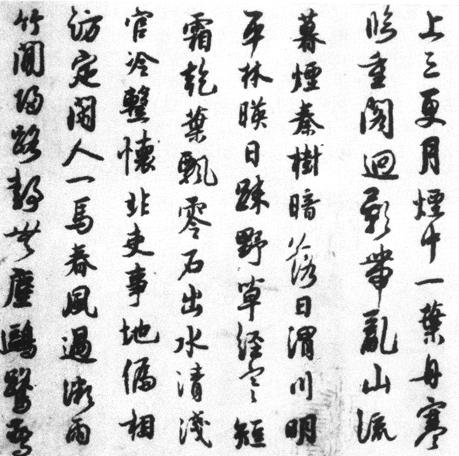 上三更月煙中一葉舟寒
臨重閣迥影帶亂山流
暮煙秦樹暗落日渭川明
平林暎日疎野草經寒短
霜乾葉飄零石出水清淺
官冷整懷非吏事地偏相
訪定閑人一馬春風過微雨
竹間歸路靜無塵鷗鷺